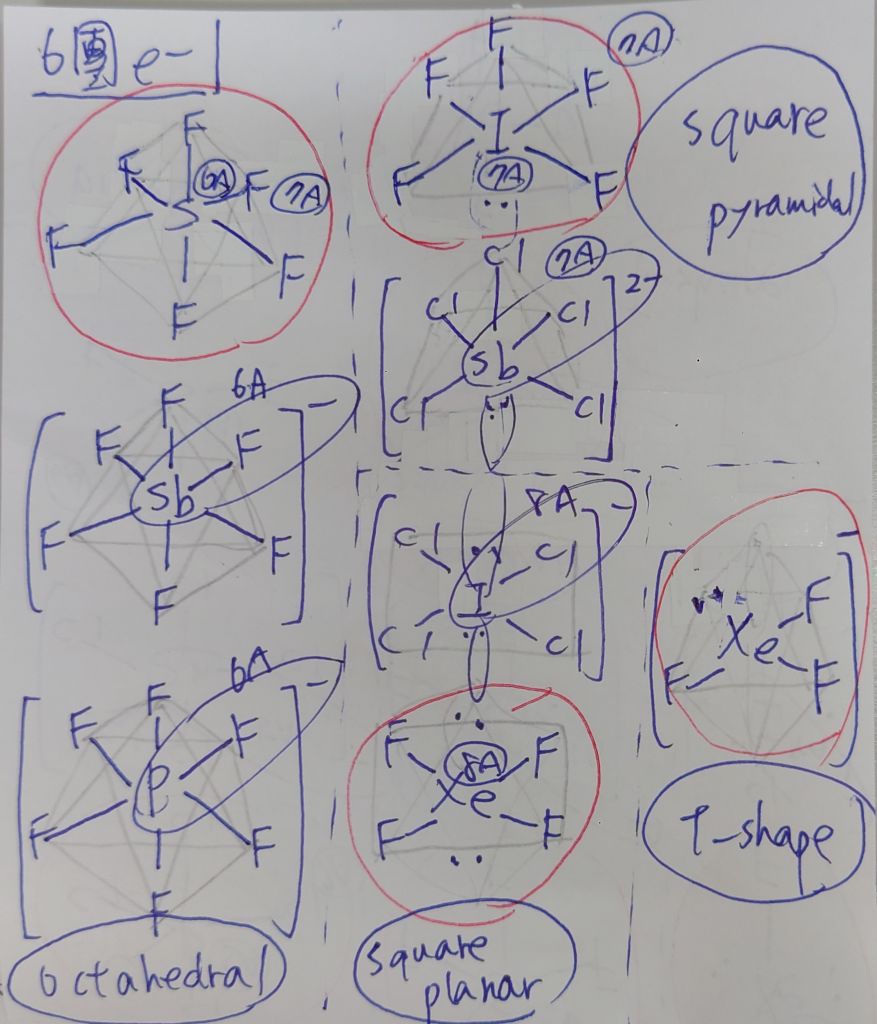 6團 e-
F
F F
6A 7A
S
F F
F
F 7A
F F
I
7A
F F
square
pyramidal
Cl 7A
[ ]2-
Cl Cl
Sb
Cl Cl
6A
F
[ ]-
F F
Sb
F F
F
8A
[ ]-
Cl Cl
I
Cl Cl
[ ]-
Xe F
F F
6A
F
[ ]-
F F
P
F F
F
F 8A F
Xe
F F
T-shape
octahedral
square
planar